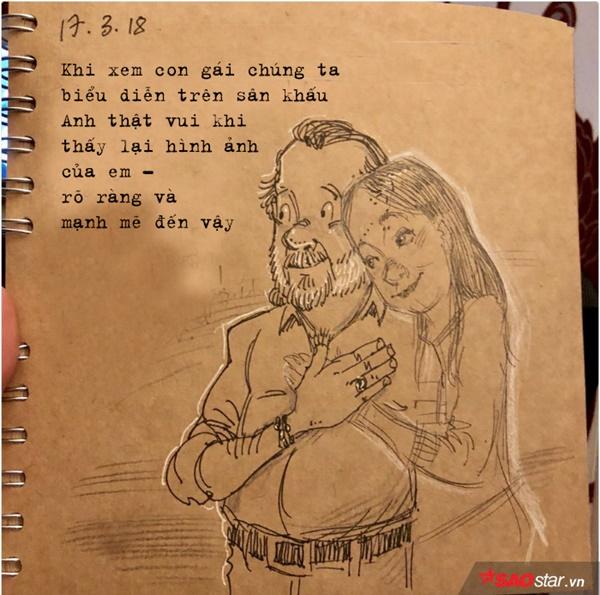 17.3.18
Khi xem con gái chúng ta
biểu diễn trên sân khấu
Anh thật vui khi
thấy lại hình ảnh
của em –
rõ ràng và
mạnh mẽ đến vậy
SAOstar.vn